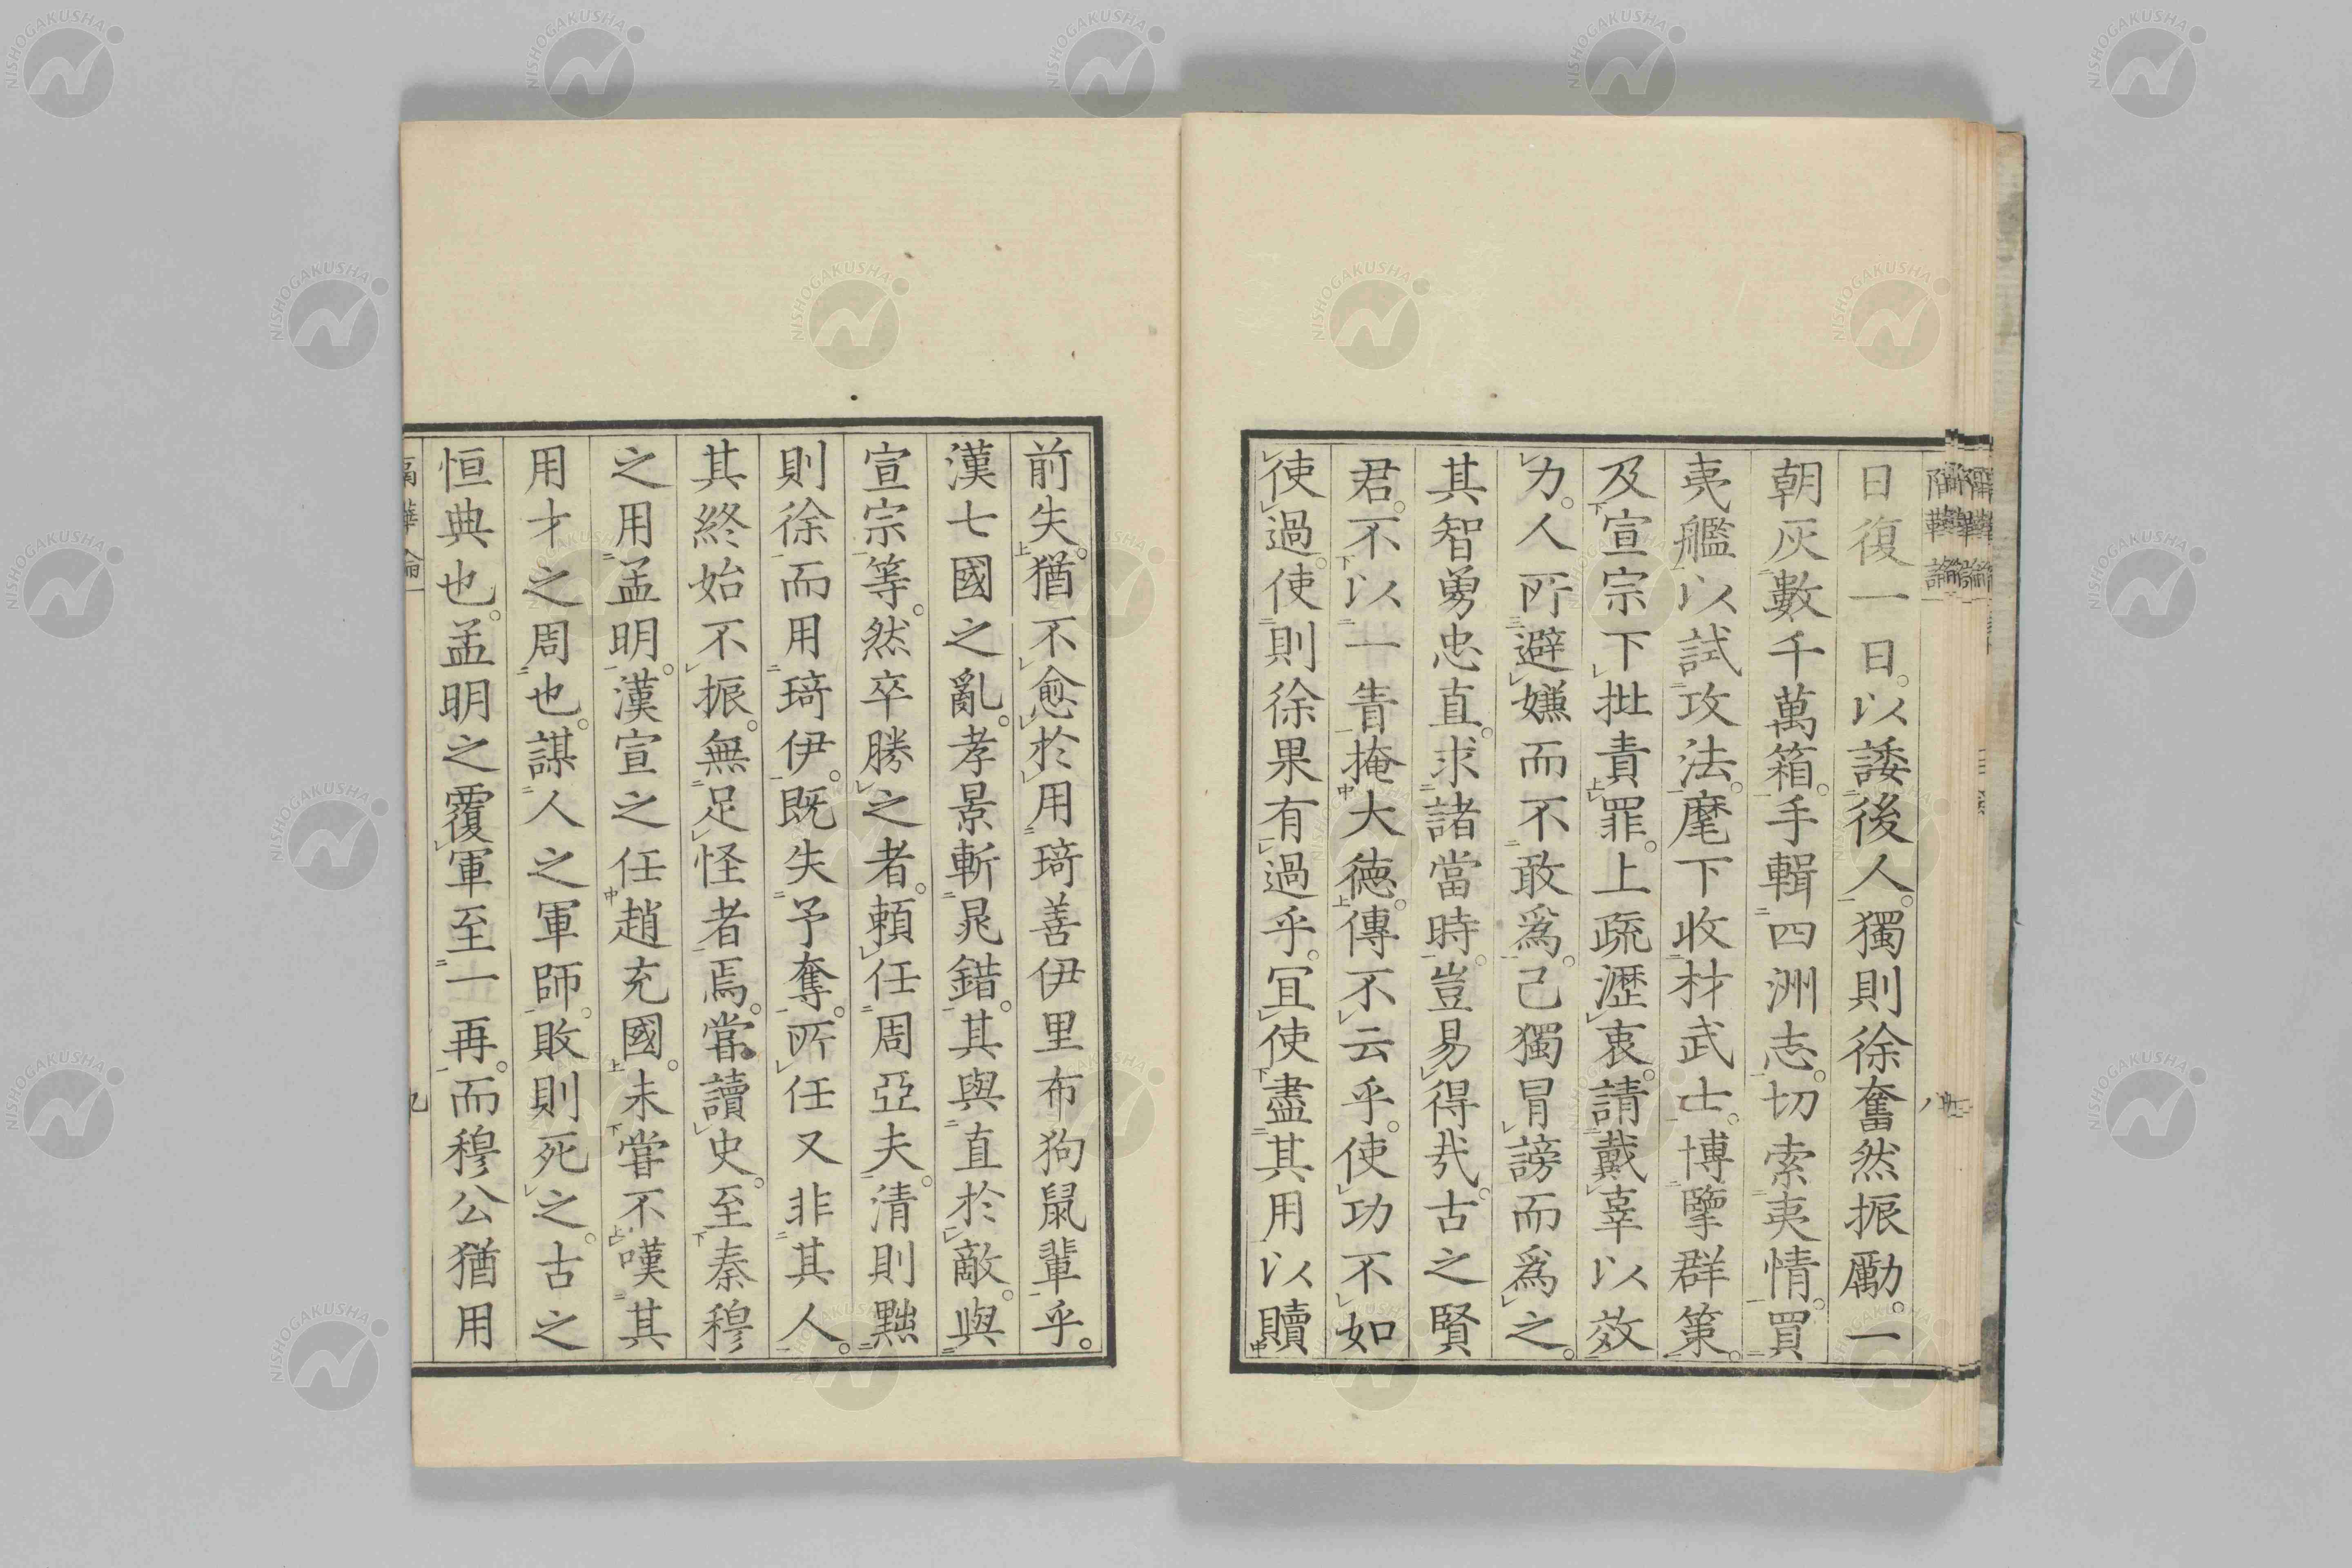 日復一日。以諉後人。獨則徐奮然振勵。一
朝灰數千萬箱。手輯四洲志。切索夷情。買
夷艦以試攻法。麾下收材武士。博擥群策。
及宣宗下批責罪。上疏瀝衷。請戴辜以效
力。人所避嫌而不敢爲。己獨冒謗而爲之。
其智勇忠直。求諸當時。豈易得哉。古之賢
君。不以一眚掩大德。傳不云乎。使功不如
使過。使則徐果有過乎。冝使盡其用以贖
前失。猶不愈於用琦善伊里布狗鼠輩乎。
漢七國之亂。孝景斬晁錯。其與直於敵。與
宣宗等。然卒勝之者。賴任周亞夫。清則黜
則徐而用琦伊。既失予奪。所任又非其人。
其終始不振。無足怪者焉。嘗讀史。至秦穆
之用孟明。漢宣之任趙充國。未嘗不嘆其
用才之周也。謀人之軍師。敗則死之。古之
恒典也。孟明之覆軍至一再。而穆公猶用
隔鞾論
八
九
NISHOGAKUSHA